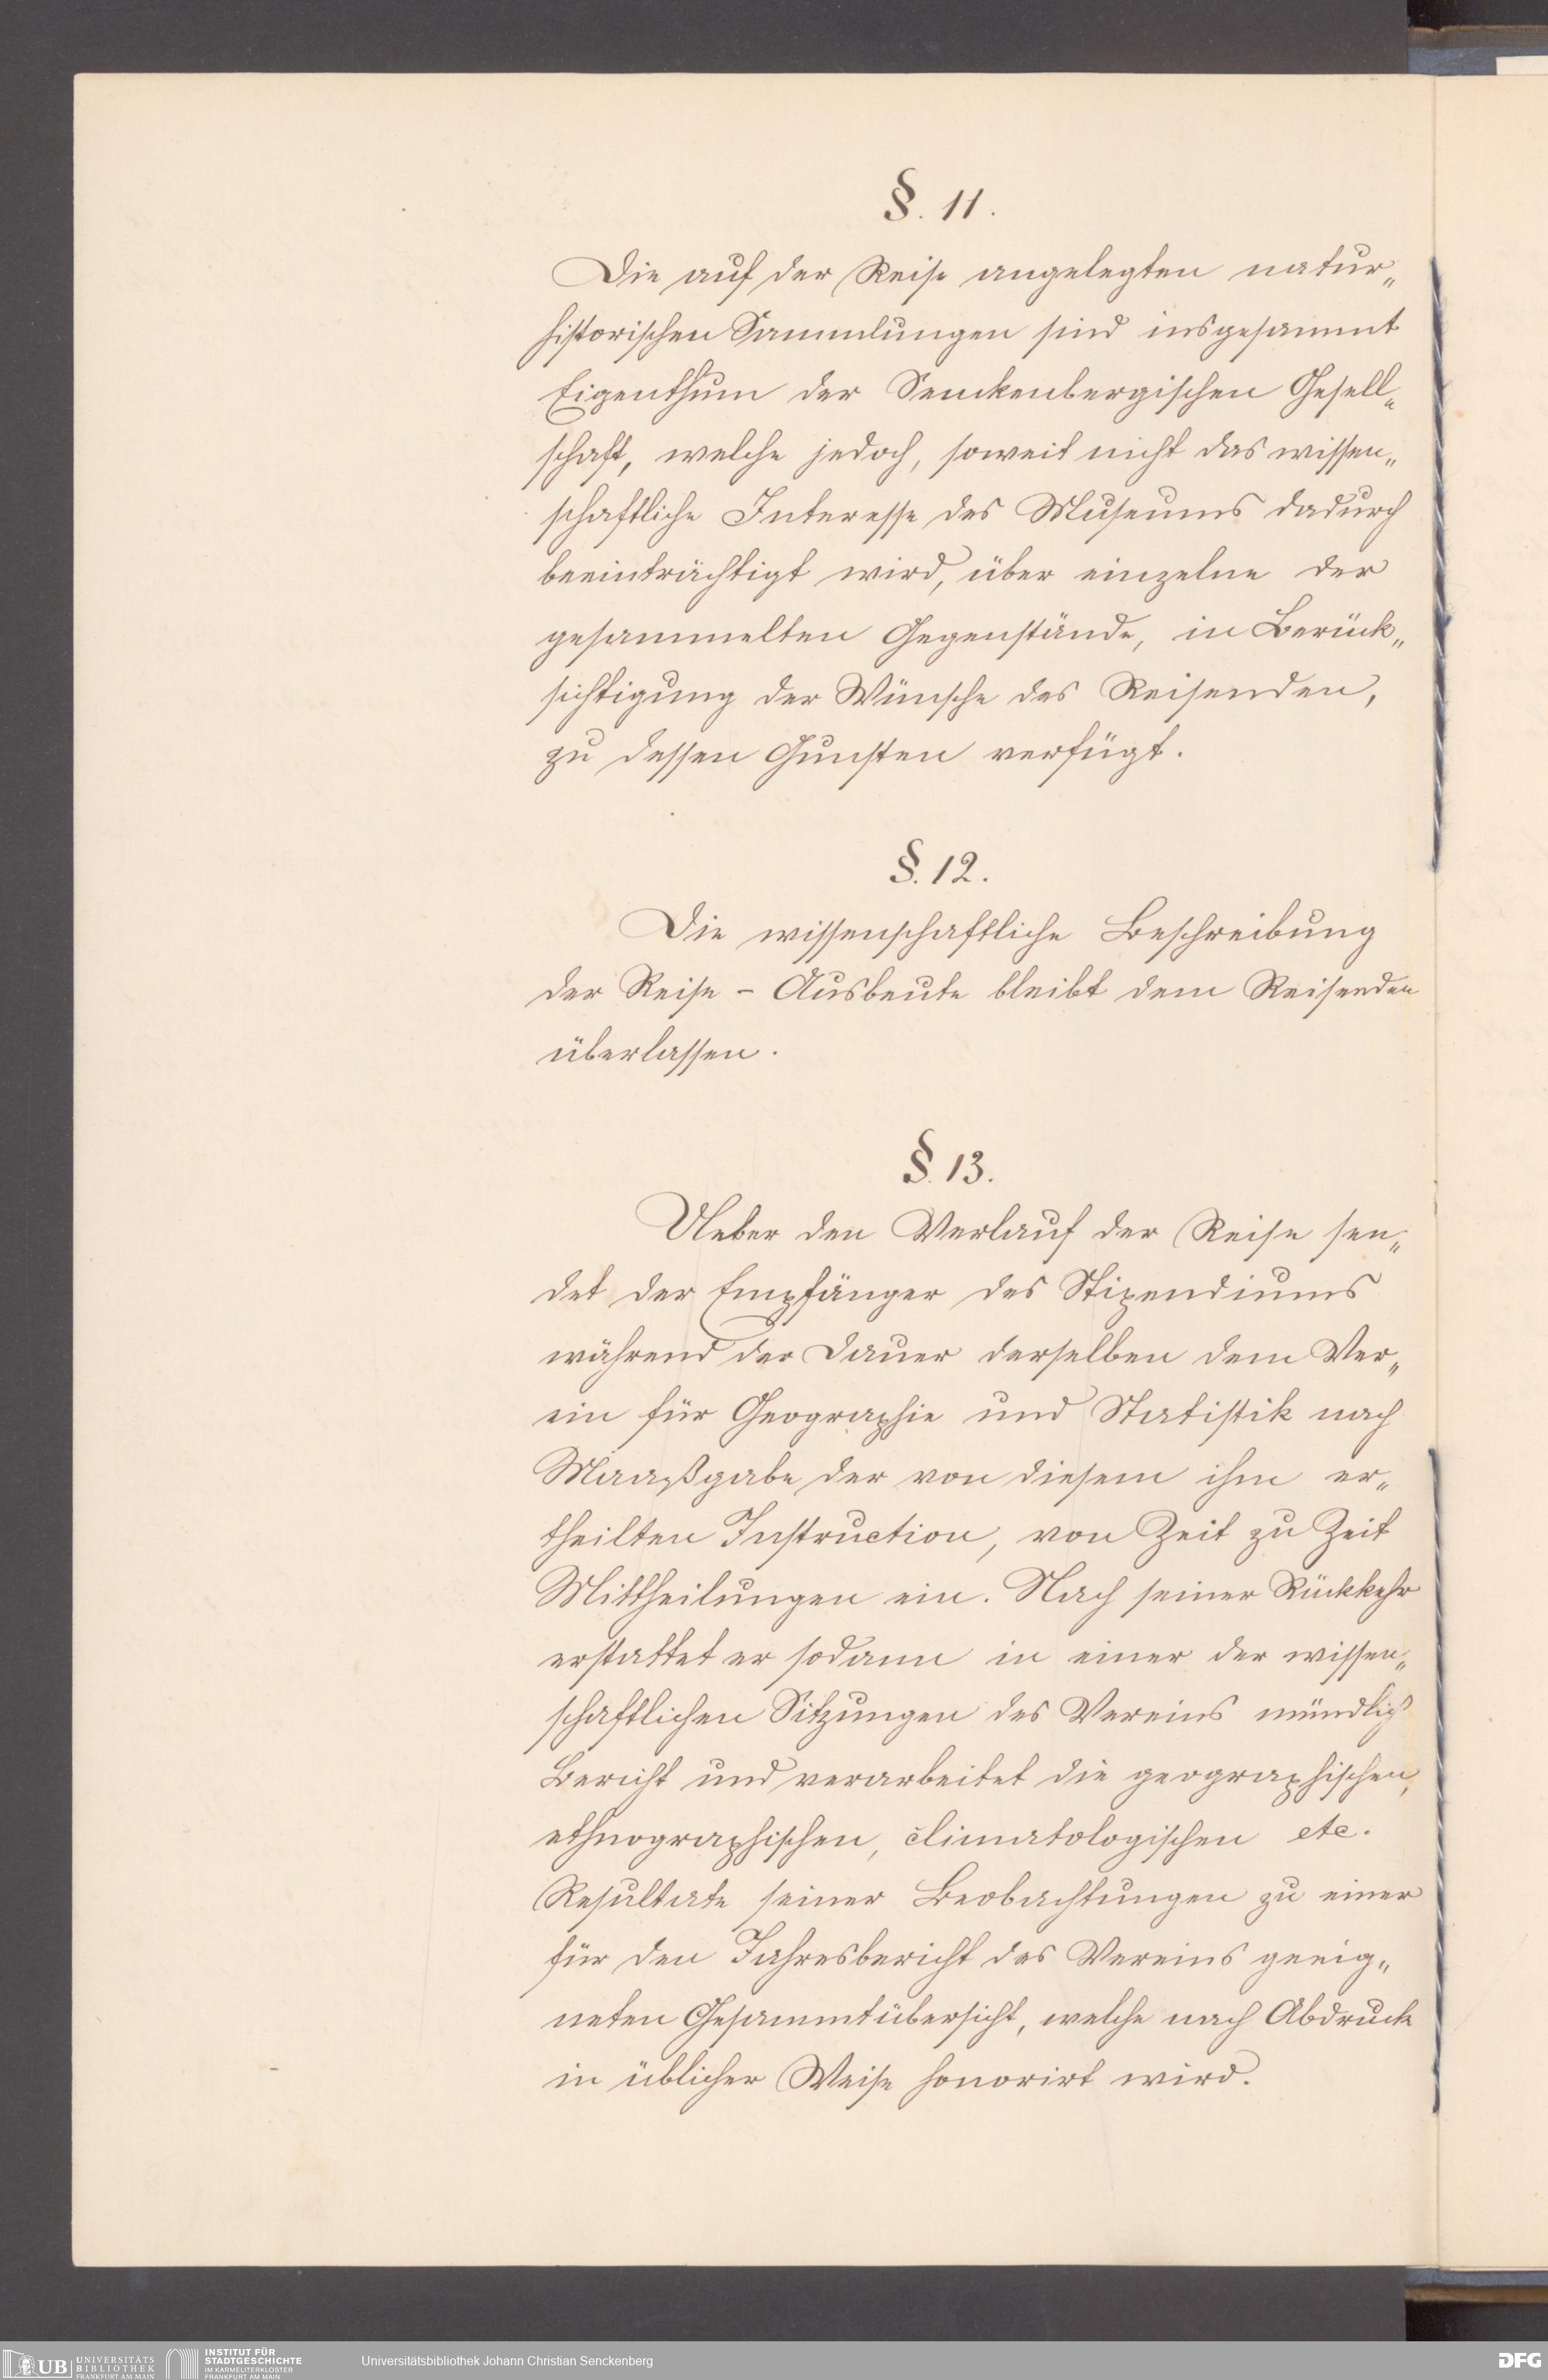 §. 11.
Die auf der Reise angelegten natur„
historischen Sammlungen sind insgesammt
Eigenthum der Senckenbergischen Gesell„
schaft, welche jedoch, soweit nicht das wissen„
schaftliche Interesse des Museums dadurch
beeinträchtigt wird, über einzelne der
gesammelten Gegenstände, in Berück„
sichtigung der Wünsche des Reisenden,
zu dessen Gunsten verfügt.
§. 12.
Die wissenschaftliche Beschreibung
der Reise - Ausbeute bleibt dem Reisenden
überlassen.
§. 13.
Ueber den Verlauf der Reise sen„
det der Empfänger des Stipendiums
während der Dauer derselben dem Ver„
ein für Geographie und Statistik nach
Maaßgabe der von diesem ihm er„
theilten Instruction, von Zeit zu Zeit
Mittheilungen ein. Nach seiner Rückkehr
erstattet er sodann in einer der wissen„
schaftlichen Sitzungen des Vereins mündlich
Bericht und verarbeitet die geographischen,
ethnographischen, climatologischen etc.
Resultate seiner Beobachtungen zu einer
für den Jahresbericht des Vereins geeig„
neten Gesammtübersicht, welche nach Abdruck
in üblicher Weise honorirt wird.
UB UNIVERSITÄTS
BIBLIOTHEK
FRANKFURT AM MAIN
INSTITUT FÜR
STADTGESCHICHTE
IM KARMELITERKLOSTER
FRANKFURT AM MAIN
Universitätsbibliothek Johann Christian Senckenberg
DFG